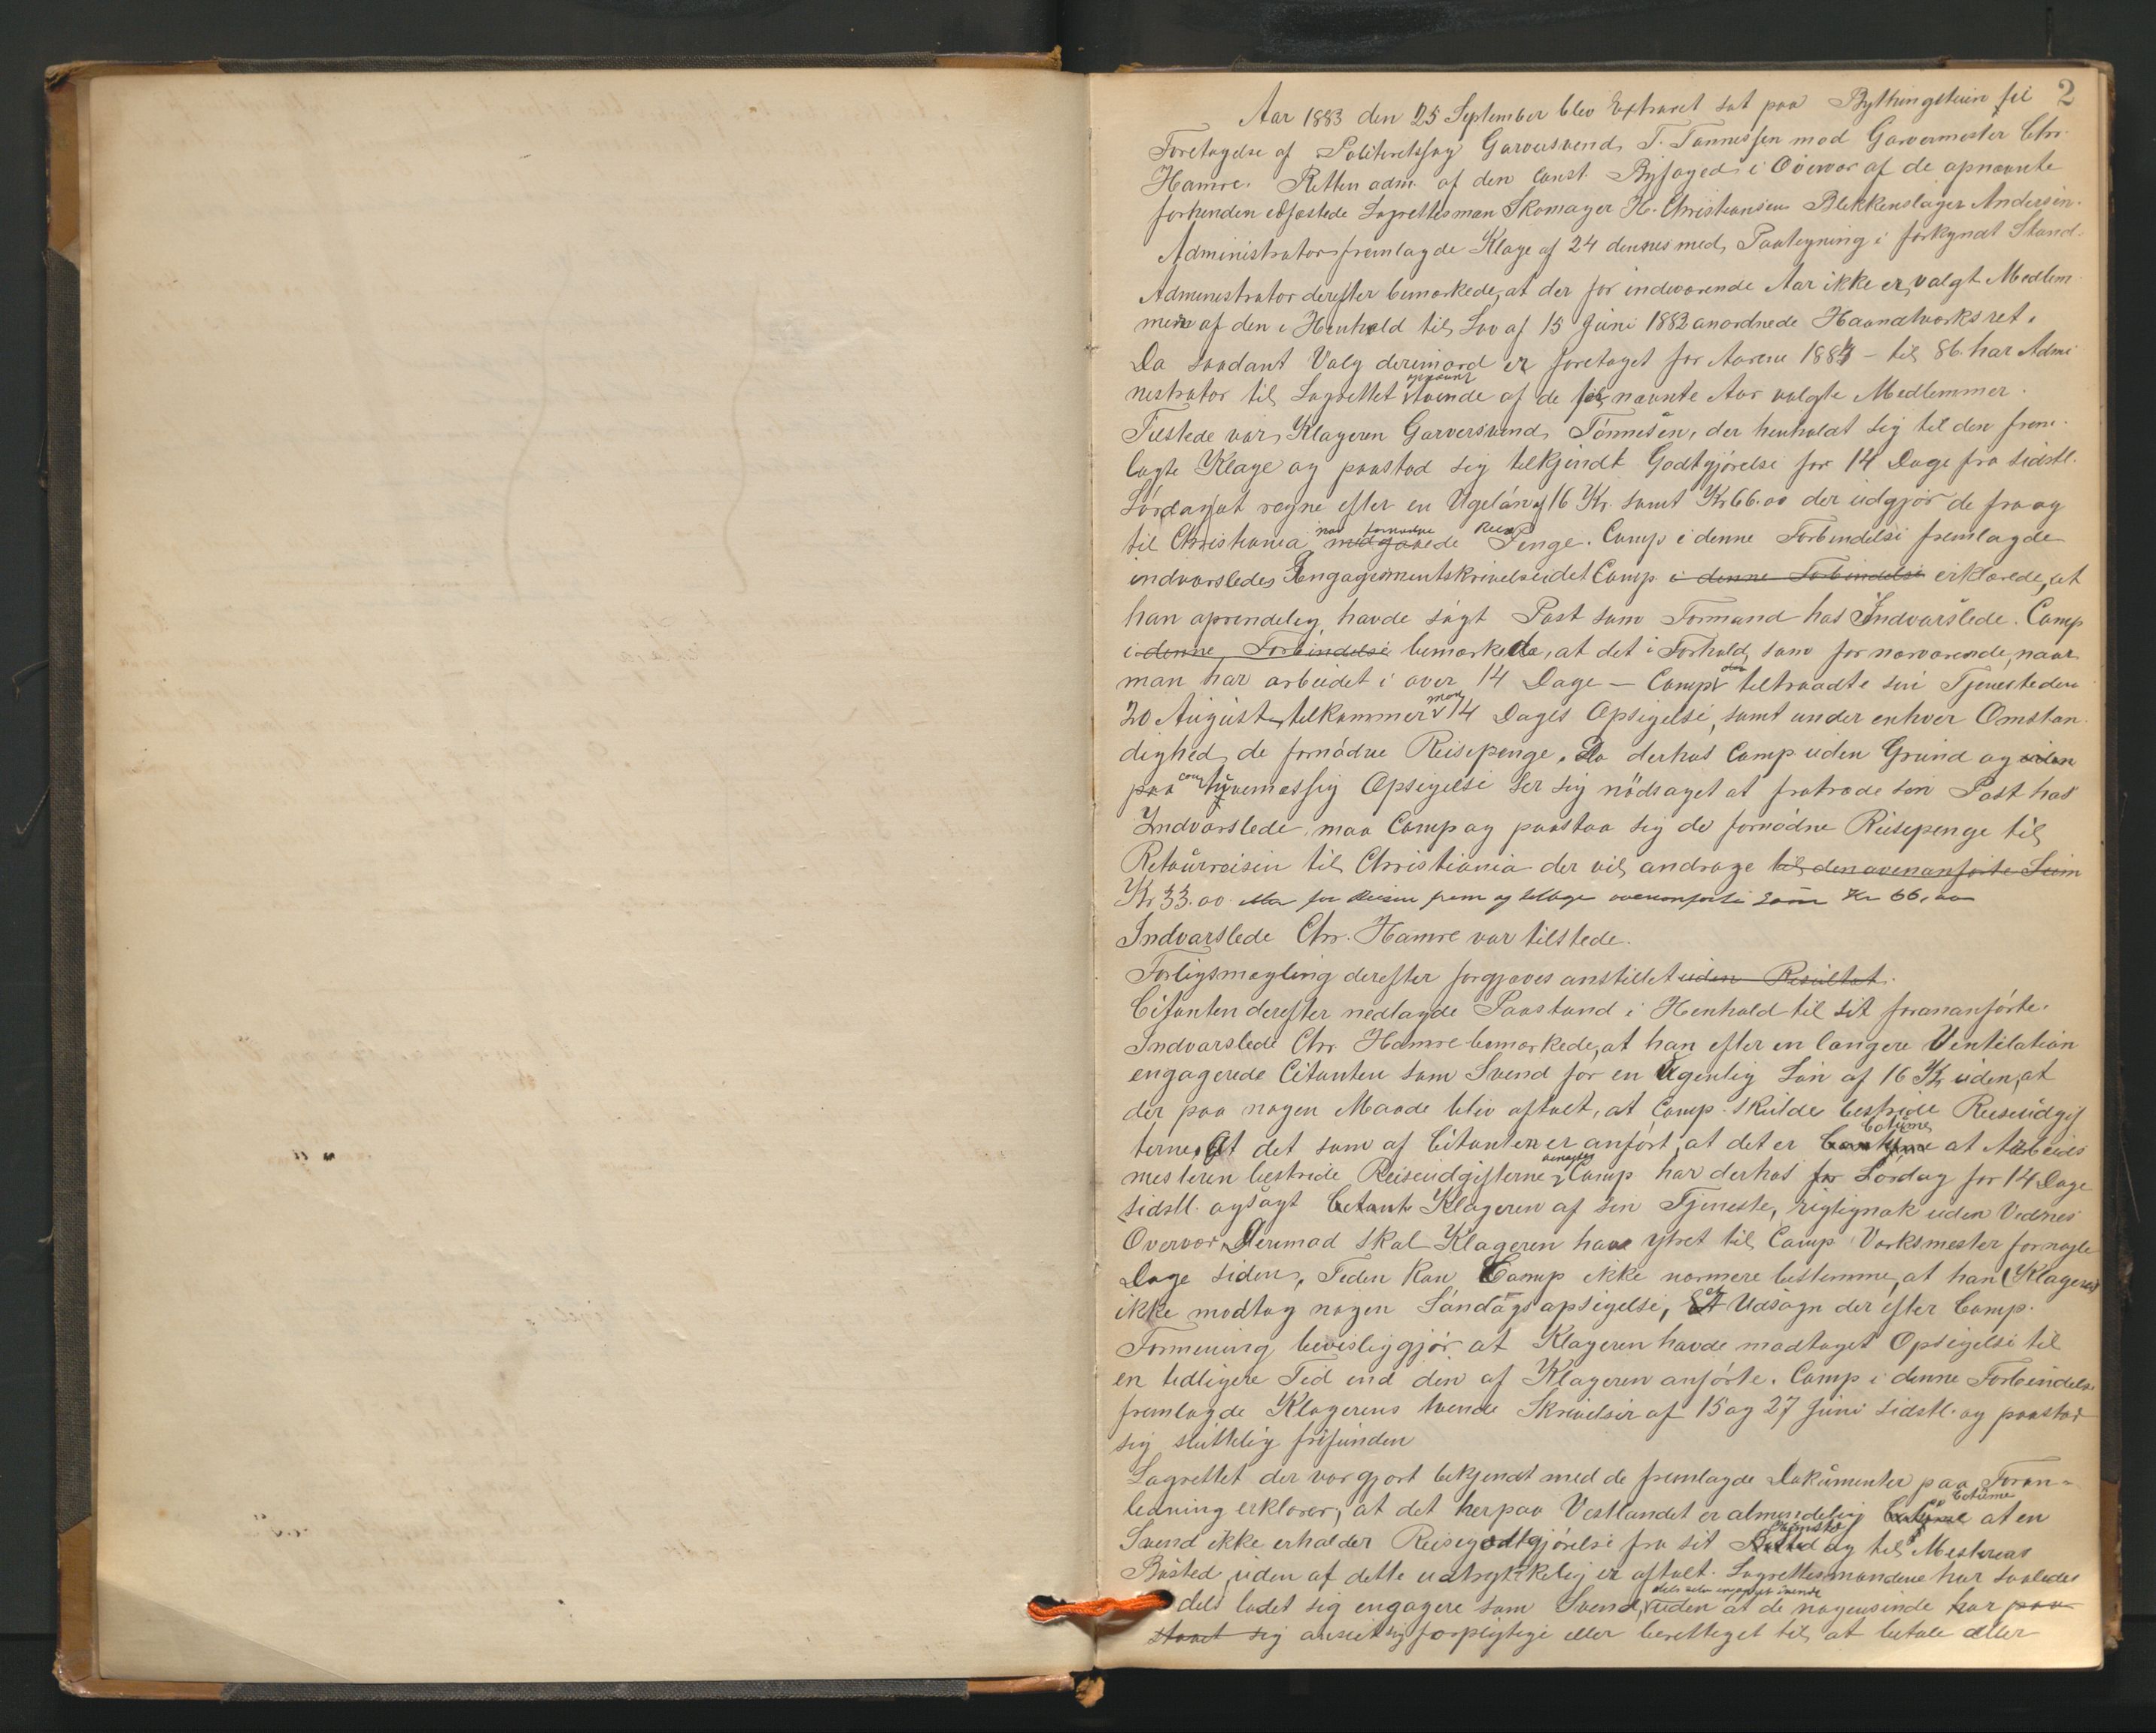 2
Aar 1883 den 25 September blev Extraret sat paa Bythingstuen til
Foretagelse af Politiretssag Garversvend T. Tønnessen mod Garvermester Chr.
Hamre. Retten adm. af den const. Byfoged i Overvær af de opnævnte
forhenden edfæstede Lagrettesmæn Skomager H. Christiansen Blikkenslager Andersen.
Administrator fremlagde Klage af 24 dennes med Paategning i forkyndt Stand.
Administrator derefter bemærkede, at der for indeværende Aar ikke er valgt Medlem
mer af den i Henhold til Lov af 15 Juni 1882 anordnede Haandværksret.
Da saadant Valg derimod er foretaget for Aarene 1884 – til 86. har Admi
nistrator til Lagrettet opnævnt tvende af de for nævnte Aar valgte Medlemmer.
Tilstede var Klageren Garversvend Tønnesen, der henholdt sig til den frem-
lagte Klage og paastod sig tilkjendt Godtgjørelse for 14 Dage fra sidstl.
Lørdag at regne efter en Ugeløn af 16 Kr. samt Kr 66.00 der udgjør de fra og
til Christiania medgaaede fornødne Reise Penge. Comp. i denne Forbindelse fremlagde
indvarsledes Engagementskrivelse idet Comp. i denne Forbindelse erklærede, at
han oprindelig havde søgt Post som Formand hos Indvarslede. Comp
i denne Forbindelse bemærkede, at det i Forhold som for nærværende, naar
man har arbeidet i over 14 Dage – Comp. tiltraadte sin Tjeneste den
20 August – tilkommer man 14 Dages Opsigelse, samt under enhver Omstæn
dighed de fornødne Reisepenge. Da derhos Comp uden Grund og uden
paa lovmæssig Opsigelse ser sig nødsaget at fratræde sin Post hos
Indvarslede, maa Comp og paastaa sig de fornødne Reisepenge til
Retourreisen til Christiania der vil andrage til den ovenanførte Sum
Kr 33.00 eller for Reisen frem og tilbage ovenanførte Sum Kr 66,00
Indvarslede Chr. Hamre var tilstede.
Forligsmægling derefter forgjæves anstillet uden Resultat.
Citanten derefter nedlagde Paastand i Henhold til sit forananførte.
Indvarslede Chr Hamre bemærkede, at han efter en længere Ventilation
engagerede Citanten som Svend for en Ugentlig Løn af 16 Kr uden, at
der paa nogen Maade blev aftalt, at Comp. skulde bestride Reiseudgif
terne. At det som af Citanten er anført, at det er Cotume at Arbeids
mesteren bestride Reiseudgifterne benægtes Comp har derhos for Lørdag for 14 Dage
sidstl. opsagt Klageren af sin Tjeneste, rigtignok uden Vidnes
Overvær. Derimod skal Klageren have ytret til Comp Værksmester for nogle
Dage siden, Tiden kan Comp ikke nærmere bestemme, at han (Klageren)
ikke modtog nogen Søndags opsigelse, et Udsagn der efter Comp.
Formening bevisliggjør at Klageren havde modtaget Opsigelse til
en tidligere Tid end den af Klageren anførte. Comp i denne Forbindelse
fremlagde Klagerens tvende Skrivelser af 15 og 27 Juni sidstl. og paastod
sig sluttelig frifunden
Lagrettet der var gjort bekjendt med de fremlagde Dokumenter paa Foran-
ledning erklærer, at det her paa Vestlandet er almindelig Cotume at en
Svend ikke erholder Reisegodtgjørelse fra sit Hjemsted og til Mesterens
Bosted uden at dette udtrykkelig er aftalt. Lagrettesmændene har saaledes
dels ladet sig engagere som Svend, dels selv engageret svende uden at de nogensinde har paa
staaet sig anseet sig forpligtige eller berettiget til at betale eller